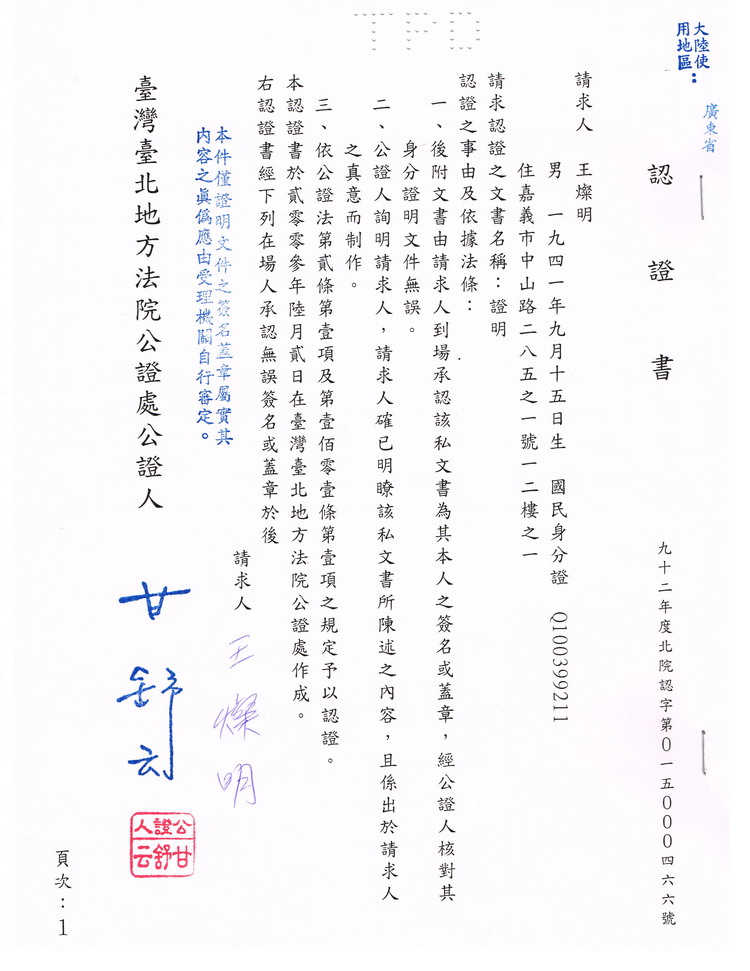 TPD
大陸使
用地區：
廣東省
認證書
九十二年度北院認字第0一五000四六六號
請求人　王燦明
男　一九四一年九月十五日生　國民身分證　Q100399211
住嘉義市中山路二八五之一號一二樓之一
請求認證之文書名稱：證明
認證之事由及依據法條：
一、後附文書由請求人到場承認該私文書為其本人之簽名或蓋章，經公證人核對其
身分證明文件無誤。
二、公證人詢明請求人，請求人確已明瞭該私文書所陳述之內容，且係出於請求人
之真意而制作。
三、依公證法第貳條第壹項及第壹佰零壹條第壹項之規定予以認證。
本認證書於貳零零參年陸月貳日在臺灣臺北地方法院公證處作成。
右認證書經下列在場人承認無誤簽名或蓋章於後
請求人　王燦明
本件僅證明文件之簽名蓋章屬實其
內容之眞僞應由受理機關自行審定。
臺灣臺北地方法院公證處公證人　甘舒云
公證人
甘舒云
頁次：1